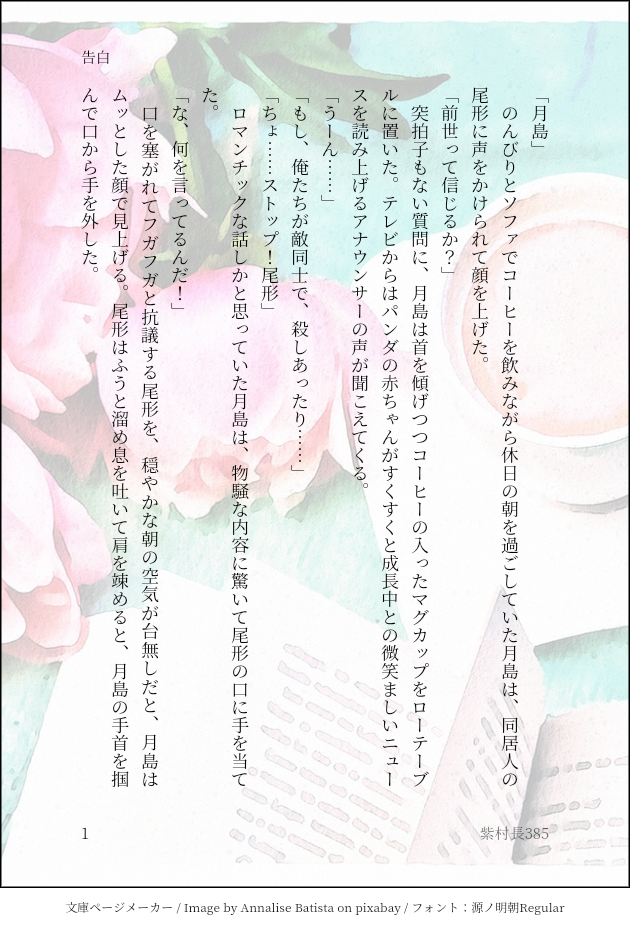 告白
「月島」
　のんびりとソファでコーヒーを飲みながら休日の朝を過ごしていた月島は、同居人の
尾形に声をかけられて顔を上げた。
「前世って信じるか？」
　突拍子もない質問に、月島は首を傾げつつコーヒーの入ったマグカップをローテーブ
ルに置いた。テレビからはパンダの赤ちゃんがすくすくと成長中との微笑ましいニュー
スを読み上げるアナウンサーの声が聞こえてくる。
「うーん……」
「もし、俺たちが敵同士で、殺しあったり……」
「ちょ……ストップ！尾形」
　ロマンチックな話しかと思っていた月島は、物騒な内容に驚いて尾形の口に手を当て
た。
「な、何を言ってるんだ！」
　口を塞がれてフガフガと抗議する尾形を、穏やかな朝の空気が台無しだと、月島は
ムッとした顔で見上げる。尾形はふうと溜め息を吐いて肩を竦めると、月島の手首を掴
んで口から手を外した。
1
紫村長385
文庫ページメーカー / Image by Annalise Batista on pixabay / フォント：源ノ明朝Regular